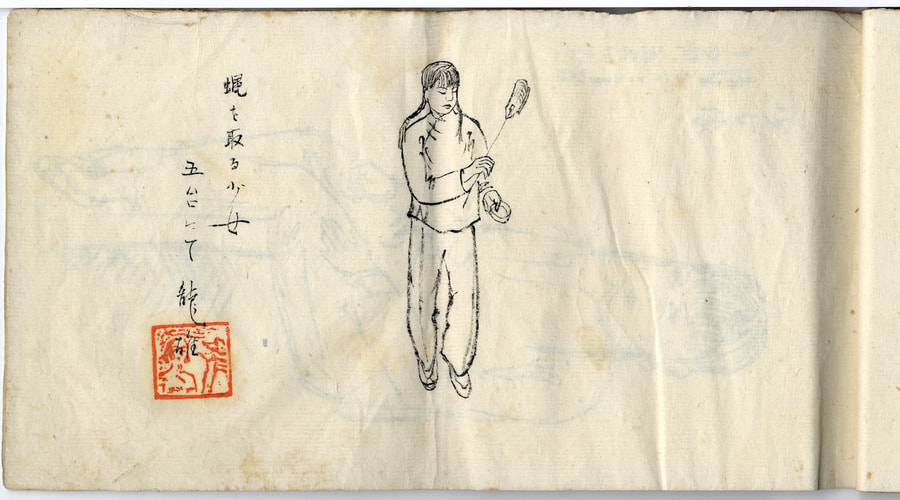 蠅を取る少女
五台にて 龍雄